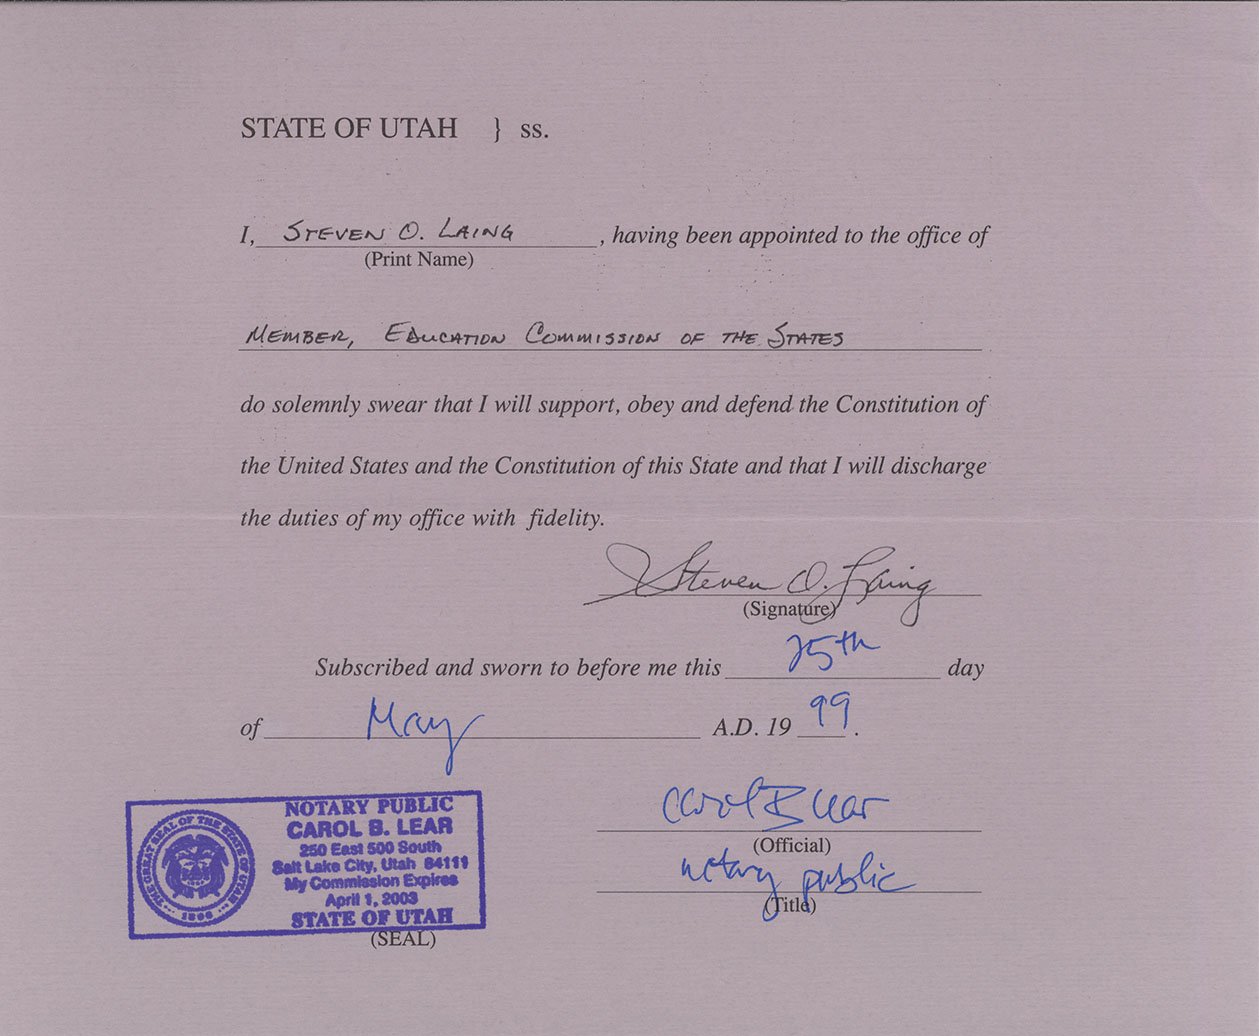 STATE OF UTAH } ss.
I, STEVEN O. LAING, having been appointed to the office of
(Print Name)
MEMBER, EDUCATION COMMISSION OF THE STATES
do solemnly swear that I will support, obey and defend the Constitution of
the United States and the Constitution of this State and that I will discharge
the duties of my office with fidelity.
Steven O. Laing
(Signature)
Subscribed and sworn to before me this 25th day
of May A.D. 19 99.
Carol B Lear
(Official)
notary public
(Title)
THE GREAT SEAL OF THE STATE OF UTAH
1896
NOTARY PUBLIC
CAROL B. LEAR
250 East 500 South
Salt Lake City, Utah 84111
My Commission Expires
April 1, 2003
STATE OF UTAH
(SEAL)